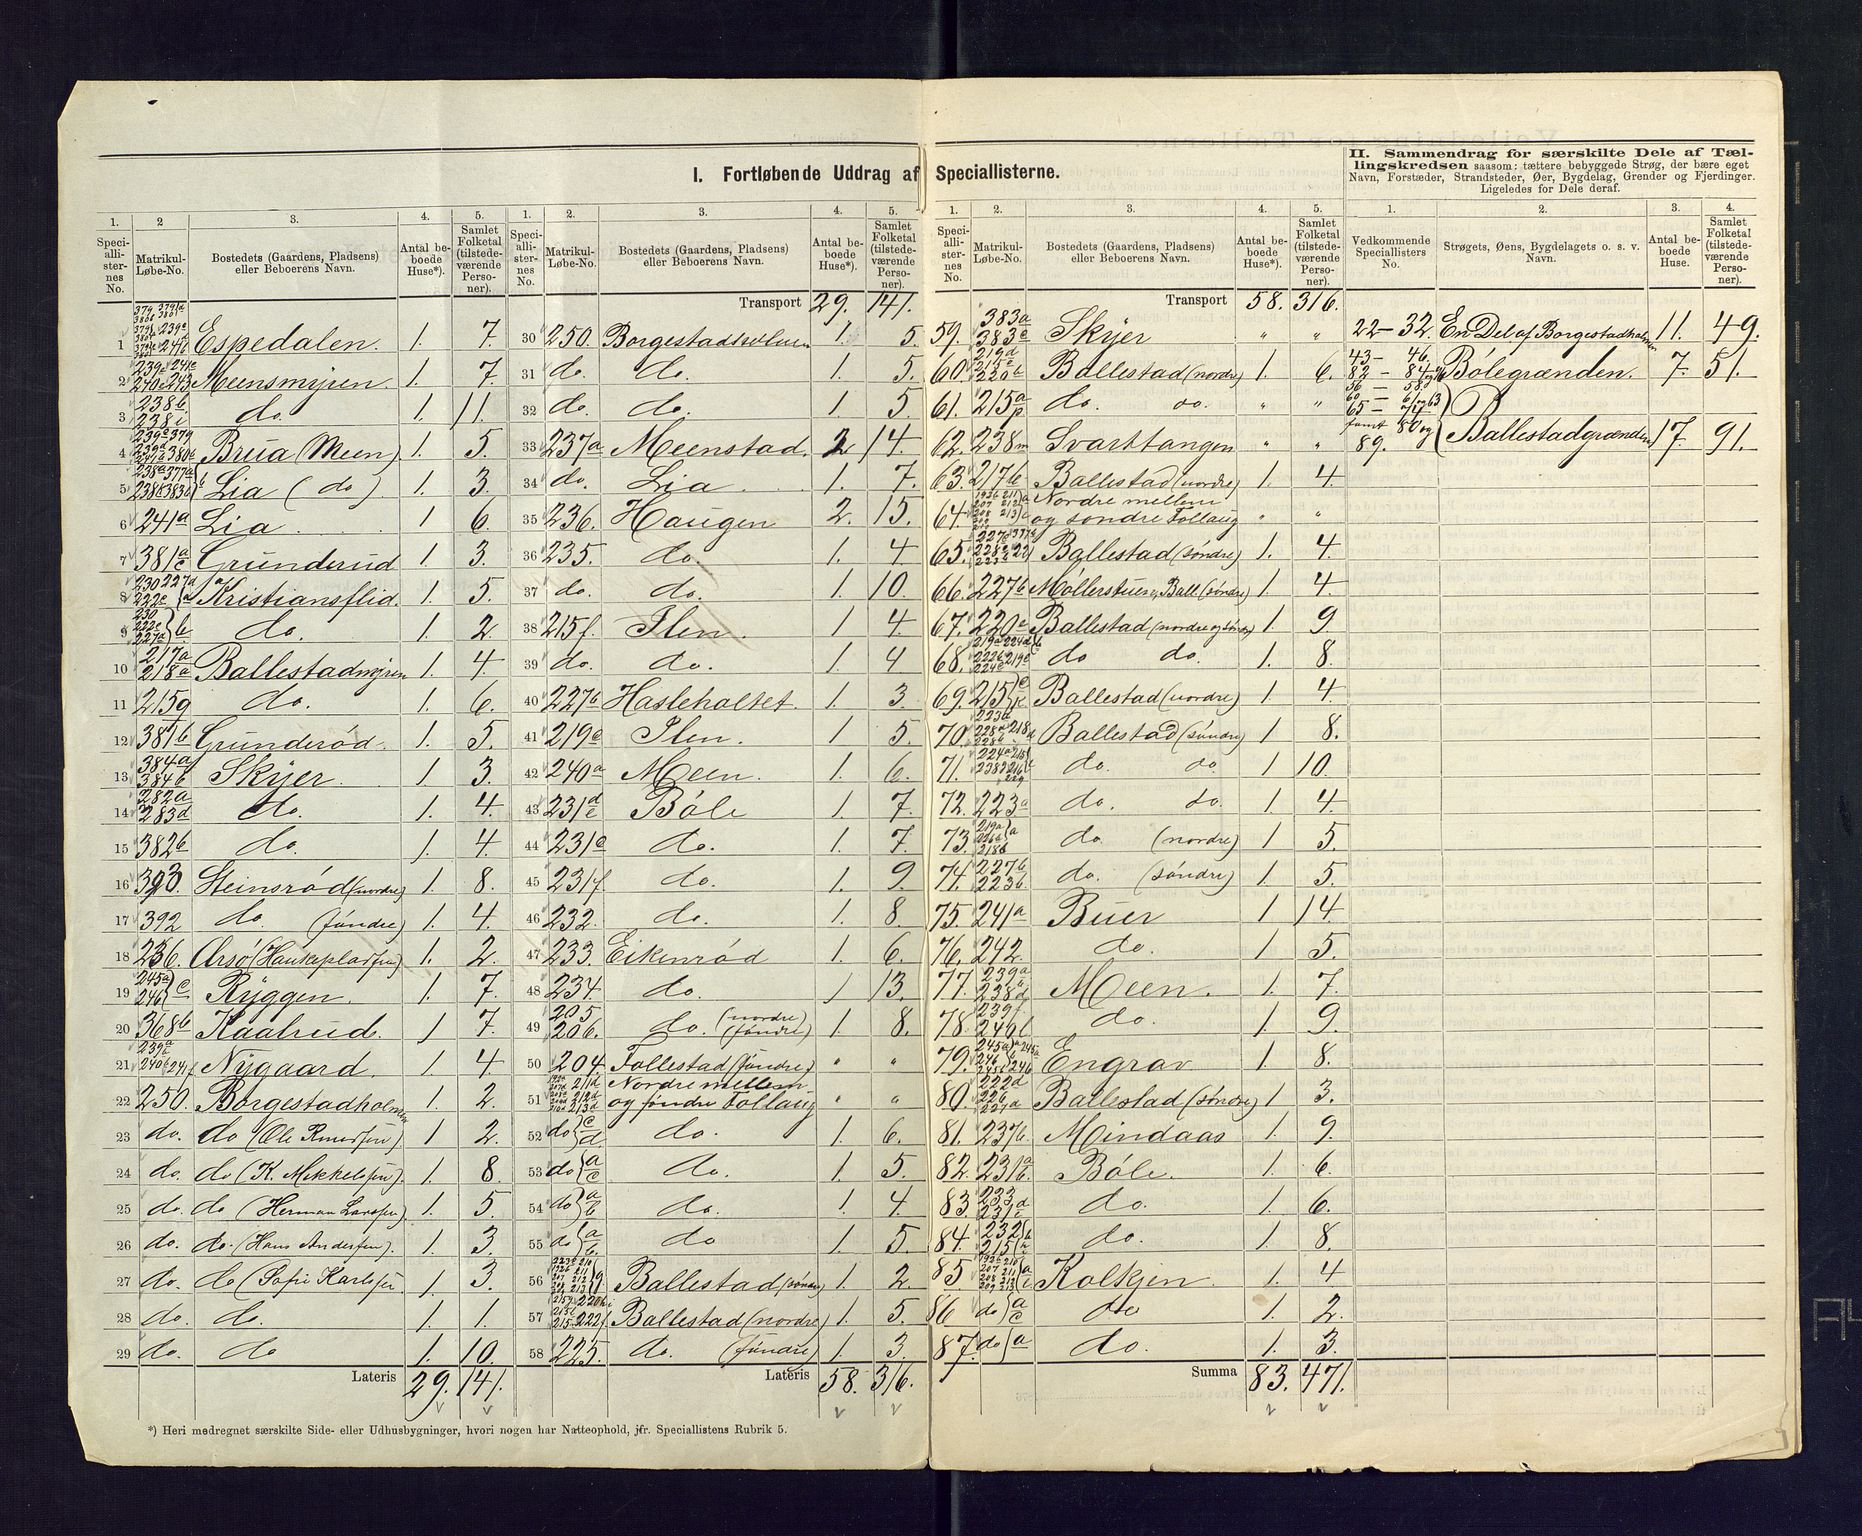 I. Fortløbende Uddrag af Speciallisterne.
II. Sammendrag for særskilte Dele af Tæl-
lingskredsen saasom: tættere bebyggede Strøg, der bære eget
Navn, Forstæder, Strandsteder, Øer, Bygdelag, Grender og Fjerdinger.
Ligeledes for Dele deraf.
1. 2 3. 4. 5. 1. 2. 3. 4. 5. 1. 2. 3. 4. 5. 1. 2. 3. 4.
Speciallisternes No. Matrikul-Løbe-No. Bostedets (Gaardens, Pladsens) eller Beboerens Navn. Antal beboede Huse*). Samlet Folketal (tilstedeværende Personer).
Speciallisternes No. Matrikul-Løbe-No. Bostedets (Gaardens, Pladsens) eller Beboerens Navn. Antal beboede Huse*). Samlet Folketal (tilstedeværende Personer).
Speciallisternes No. Matrikul-Løbe-No. Bostedets (Gaardens, Pladsens) eller Beboerens Navn. Antal beboede Huse*). Samlet Folketal (tilstedeværende Personer).
Vedkommende Speciallisters No. Strøgets, Øens, Bygdelagets o. s. v. Navn. Antal beboede Huse. Samlet Folketal (tilstedeværende Personer).
1 Espedalen. 1. 7.
2 Meensmyren 1. 7.
3 238b 238i do. 1. 11.
4 Brua (Meen) 1. 5.
5 Lia (do) 1. 3.
6 241a Lia. 1 6.
7 381 a c Grunderud 1. 3.
8 Kristiansflid. 1. 5.
9 230 222c 227a } b do. 1. 2.
10 217a 218a Ballestadmyren 1. 4.
11 215g do. 1. 6.
12 381b Grunderød. 1. 5.
13 384a 384b Skyer. 1 3.
14 282a 283d do. 1. 4.
15 382b do. 1. 4.
16 393. Steinsrød (nordre) 1. 8.
17 392 do. (søndre) 1. 4.
18 236. Arsø (Hauseplassen) 1. 2.
19 245a 246 } c Ryggen. 1. 7.
20 368b Kaalrud. 1 7.
21 Nygaard. 1 4
22 250. Borgestadholmen 1. 2.
23 do. do (Ole Amessen) 1 2.
24 do. do (K. Mikkelsen). 1. 8.
25 do. do (Herman Larssen) 1. 5.
26 do. do. (Hans Andersen). 1. 3.
27 do. do (Sofie Karlsen. 1. 3.
28 do. do. 1. 1.
29 do. do 1. 10.
Lateris 29. 141.
Transport 29. 141.
30 250. Borgestadholmen 1. 5.
31 do. do. 1. 5.
32 do. do. 1. 5
33 237a Meenstad. 2 14.
34 do. Lia. 1. 7.
35 236. Haugen 2. 15.
36 235. do. 1. 4
37 do. do. 1 10.
38 215f. Ilen. 1 4.
39 do. do. 1 4
40 227b Hasleholtet. 1 3.
41 219e Ilen. 1 5.
42 240a Meen. 1. 6.
43 231 d e Bøle 1. 7.
44 231c do. 1. 7.
45 231f. do. 1. 9.
46 232. do. 1. 8.
47 233. Eikenrød 1. 6.
48 234. do. 1 13.
49 205. 206. do. (nordre) (søndre) 1. 8.
50 204. Follestad (søndre) " "
51 Nordre mellem og søndre Follaug " "
52 do } c d do. 1. 6.
53 do } a c do. 1. 5.
54 do } a b do. 1. 4.
55 do } a b. do 1 5.
56 Ballestad (søndre) 1. 2.
57 Ballestad (nordre) 1. 5.
58 225. do. (søndre) 1. 3.
Lateris 58. 316.
Transport 58. 316.
59. 383a 383c Skyer " "
60. Ballestad (nordre) 1. 6.
61. 215 a p do. do. " "
62. 238m Svarttangen " "
63. 217b Ballestad (nordre) 1. 4.
64. Nordre mellem og søndre Follaug " "
65. Ballestad (søndre) 1. 4.
66. 227b Møllerstuen, Ball (søndre) 1. 4
67. 220e Ballestad (nordre og søndre 1. 9.
68. do do. 1. 8.
69. 215 Ballestad (nordre) 1. 4
70. Ballestad (søndre) 1 8.
71. do. do. 1 10.
72. 223a do. do. 1 4
73 do. (nordre) 1 5.
74. 227b 223b. do. (søndre) 1. 5.
75. 241a Buer 1 14.
76. 242. do. 1. 5.
77. 239a 238d Meen. 1. 7.
78. 239f 240b do. 1. 9.
79. Engrav 1. 8.
80. 222d 226 227a Ballestad (søndre) 1. 3.
81. 237b Mindaas 1. 9.
82. 231 a b. Bøle. 1. 6.
83. 233 231 do. 1. 6.
84. 232 215 do. 1. 8.
85. Kolkjen. 1. 4
86 do } a c do 1. 2.
87. do } a do. 1. 3.
Summa 83. 471.
22–32. En Del af Borgestadholmen 11. 49.
43– 46. 82 – 84 Bølegrænden. 7. 51.
56 – 58. 60 – 61 og 63 65 – 74 samt 80 og 89. } Ballestadgrænden 17. 91.
*) Heri medregnet særskilte Side- eller Udhusbygninger, hvori nogen har Natteophold, jfr. Speciallistens Rubrik 5.